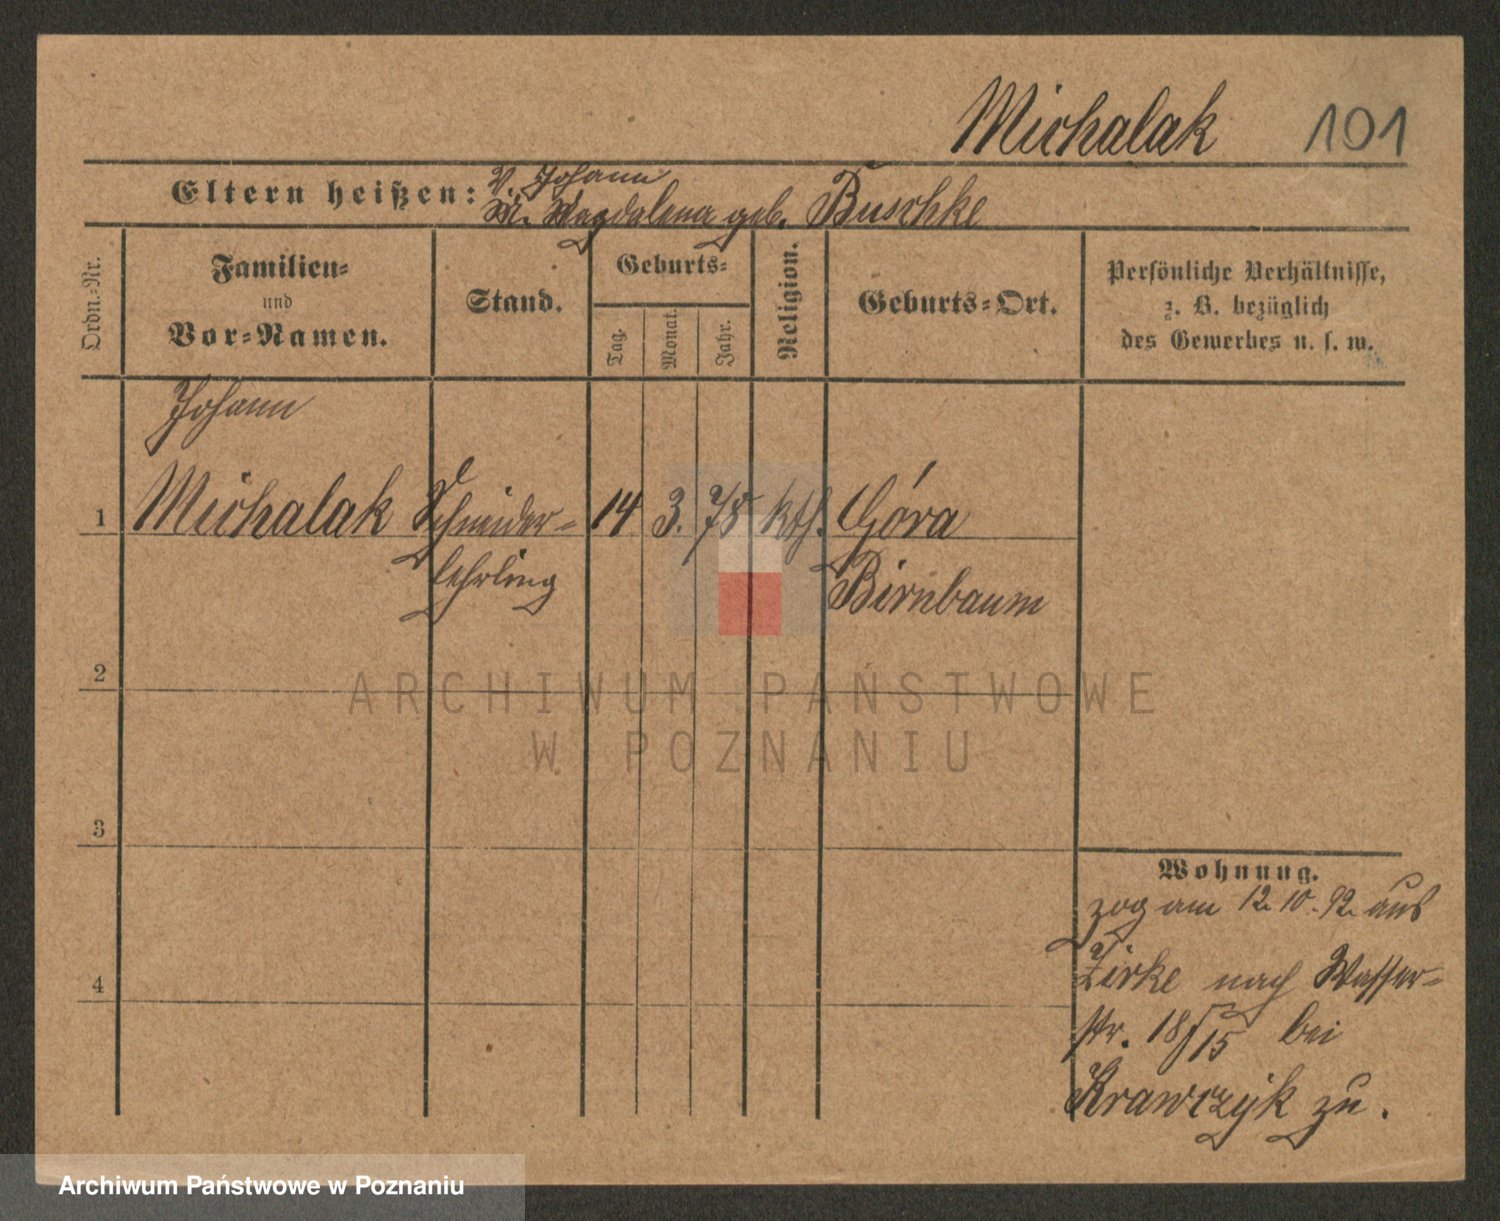 Michalak 101
Eltern heißen: V. Johann
M. Magdalena geb. Buschke
Ordn.-Nr.
Familien-
und
Vor-Namen.
Stand.
Geburts-
Tag.
Monat.
Jahr.
Religion.
Geburts-Ort.
Persönliche Verhältnisse,
z. B. bezüglich
des Gewerbes u. s. w.
Johann
1 Michalak Schneider- 14 3. 78 kth. Góra
lehrling Birnbaum
2
3
4
Wohnung.
zog am 12. 10. 92. aus
Zirke nach Wasser-
str. 18/15 bei
Krawczyk zu.
ARCHIWUM PAŃSTWOWE
W POZNANIU
Archiwum Państwowe w Poznaniu